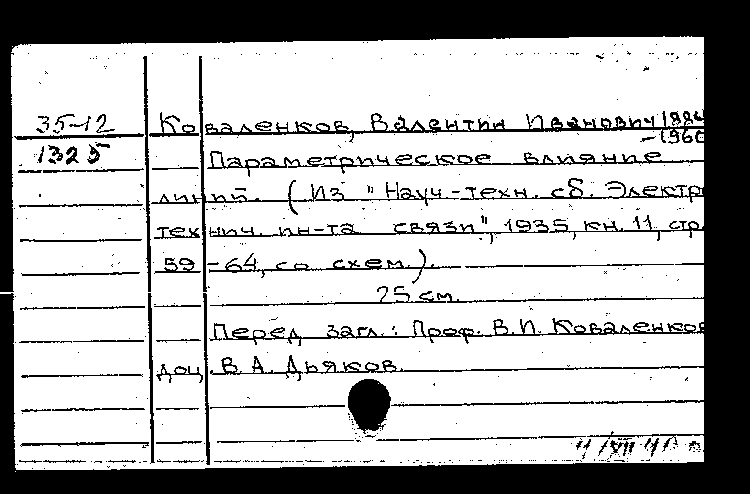 35-12 Коваленков, Валентин Иванович 1884
-1960
1325 Параметрическое влияние
линий. (Из "Науч.-техн. сб. Электро
технич. ин-та связи", 1935, кн. 11, стр.
59-64, со схем.).
25 см.
Перед загл.: Проф. В.И. Коваленков
доц. В.А. Дьяков.
4/XII